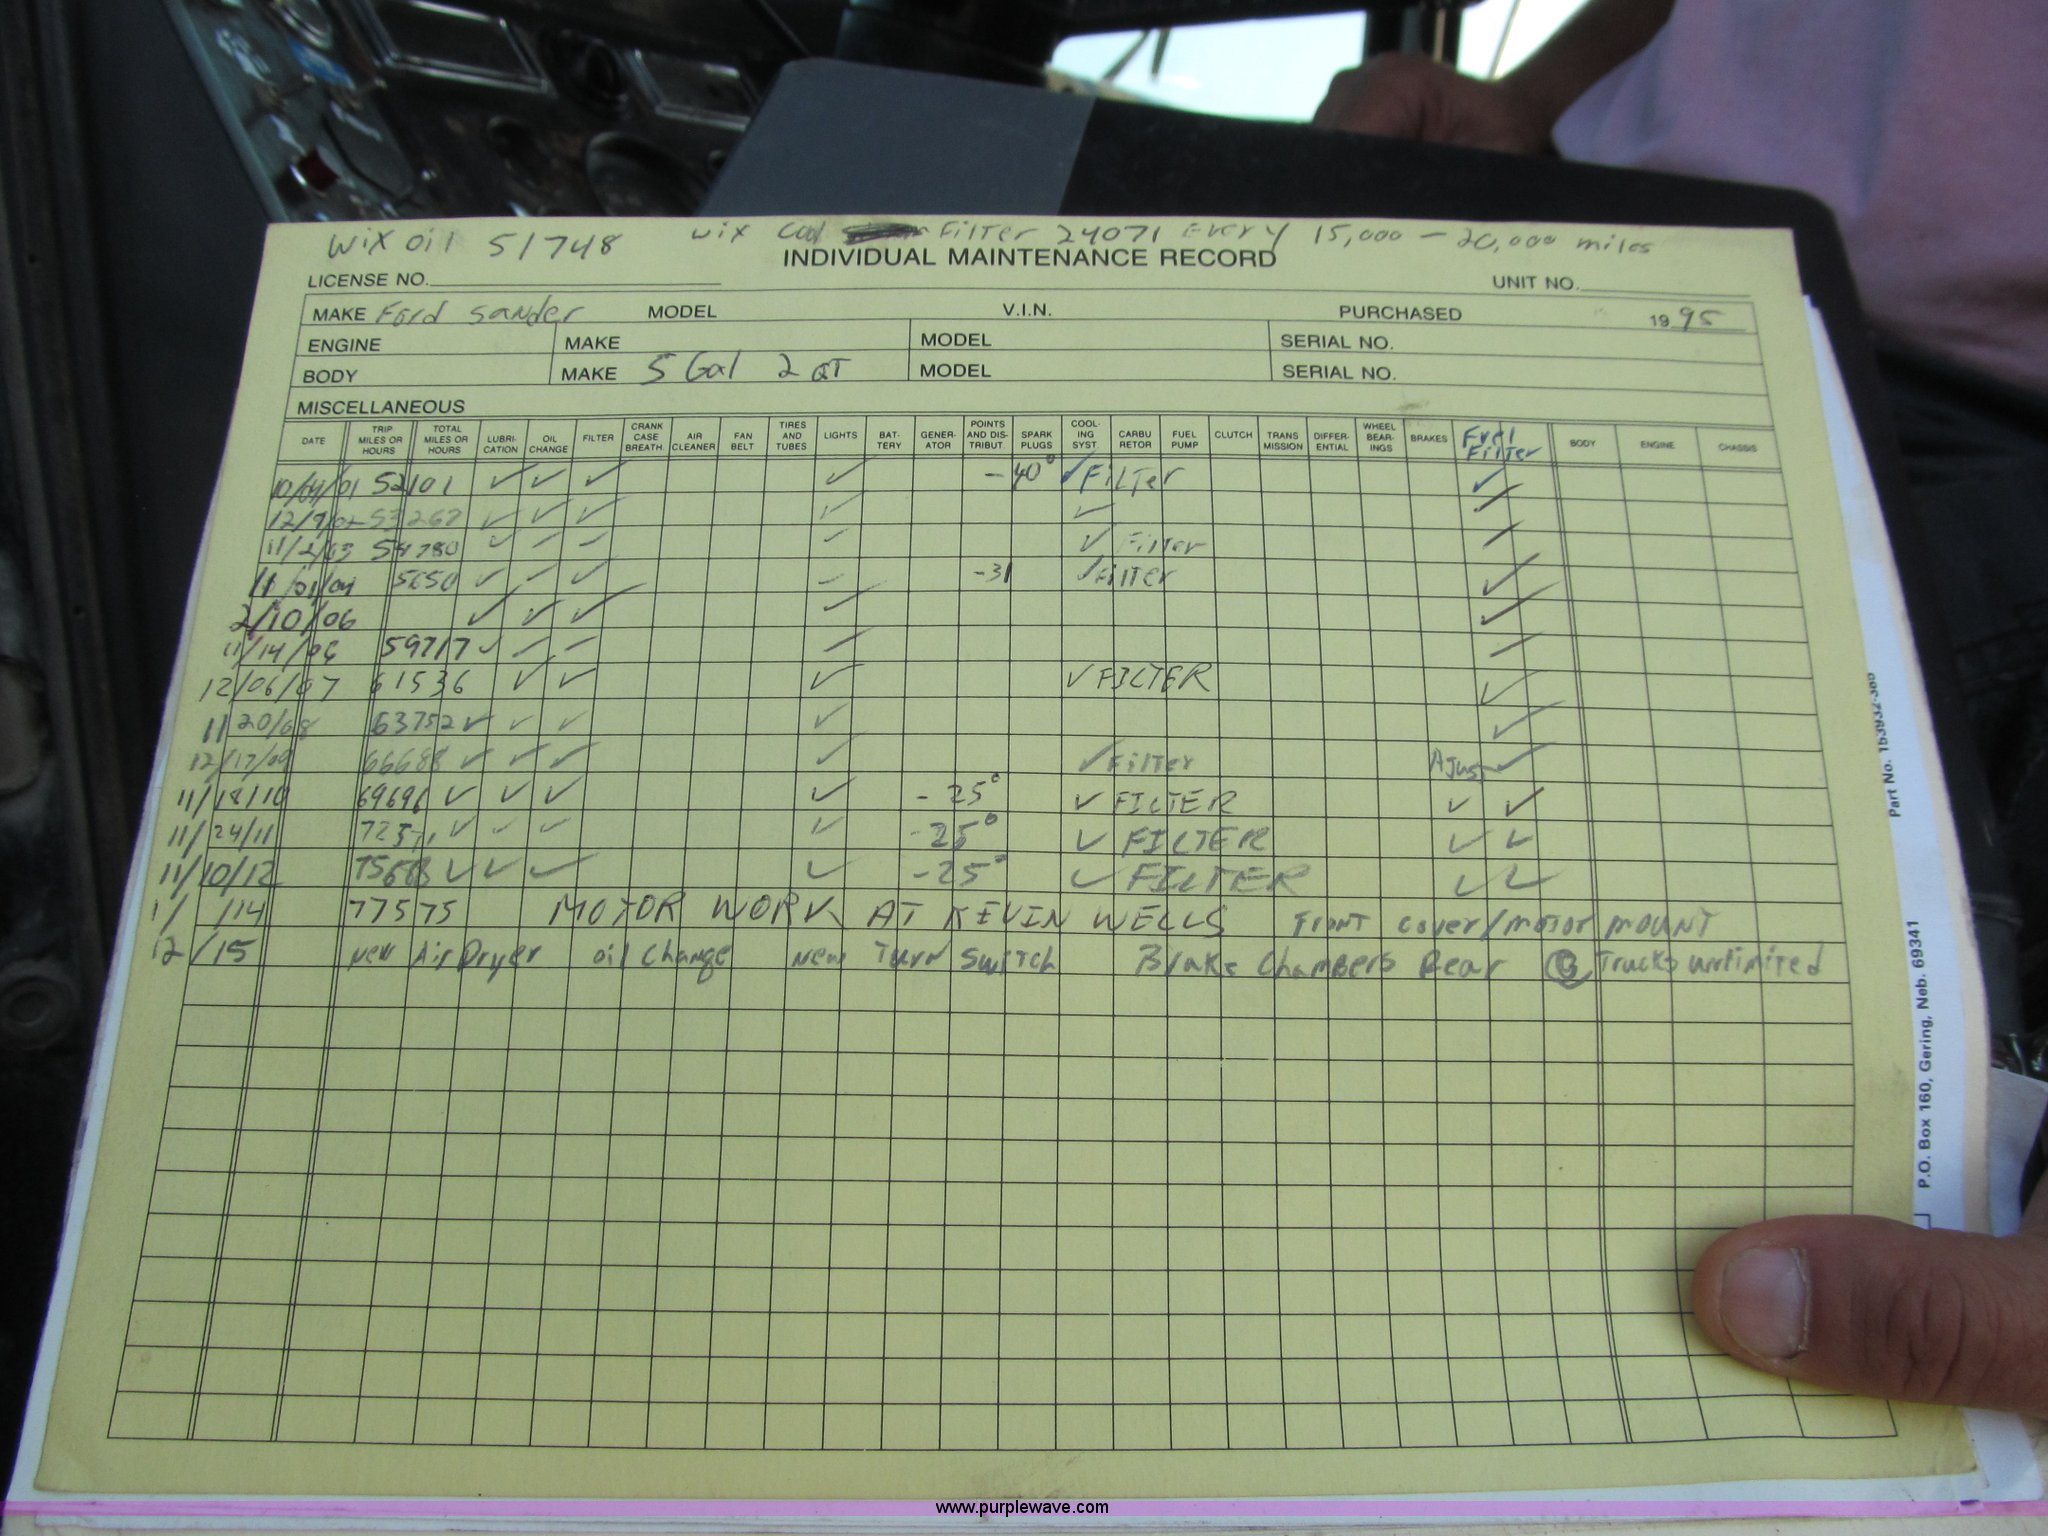 Wix oil 51748 wix Cool Filter 24071 Every 15,000 - 20,000 miles
INDIVIDUAL MAINTENANCE RECORD
LICENSE NO. UNIT NO.
MAKE Ford Sander MODEL V.I.N. PURCHASED 1995
ENGINE MAKE MODEL SERIAL NO.
BODY MAKE 5 Gal 2 QT MODEL SERIAL NO.
MISCELLANEOUS
DATE TRIP MILES OR HOURS TOTAL MILES OR HOURS LUBRI-CATION OIL CHANGE FILTER CRANK CASE BREATH. AIR CLEANER FAN BELT TIRES AND TUBES LIGHTS BAT-TERY GENER-ATOR POINTS AND DIS-TRIBUT. SPARK PLUGS COOL-ING SYST. CARBU RETOR FUEL PUMP CLUTCH TRANS MISSION DIFFER-ENTIAL WHEEL BEAR-INGS BRAKES Fuel Filter BODY ENGINE CHASSIS
10/04/01 52101 ✓ ✓ ✓ ✓ -40° ✓ Filter ✓
12/9/02 53267 ✓ ✓ ✓ ✓ ✓ ✓
11/2/03 54780 ✓ ✓ ✓ ✓ ✓ Filter ✓
11/01/04 5650 ✓ ✓ ✓ ✓ -31 ✓ Filter ✓
2/10/06 ✓ ✓ ✓ ✓ ✓
11/14/06 59717 ✓ ✓ ✓ ✓ ✓
12/06/07 61536 ✓ ✓ ✓ ✓ FILTER ✓
11/20/08 63752 ✓ ✓ ✓ ✓ ✓
12/17/09 66688 ✓ ✓ ✓ ✓ ✓ Filter Ajus ✓
11/18/10 69696 ✓ ✓ ✓ ✓ -25° ✓ FILTER ✓ ✓
11/24/11 ✓ ✓ ✓ ✓ -25° ✓ FILTER ✓ ✓
11/10/12 75683 ✓ ✓ ✓ ✓ -25° ✓ FILTER ✓ ✓
1/ /14 77575 MOTOR WORK AT KEVIN WELLS Front cover/motor mount
12/15 New Air Dryer oil Change New Turn Switch Brake Chambers Rear @ Trucks unlimited
Part No. 153932-386
P.O. Box 160, Gering, Neb. 69341
www.purplewave.com